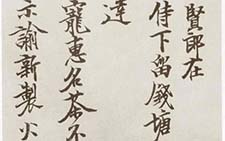 賢郎在
侍下留錢塘
達
寵惠名茶不
示諭新製火